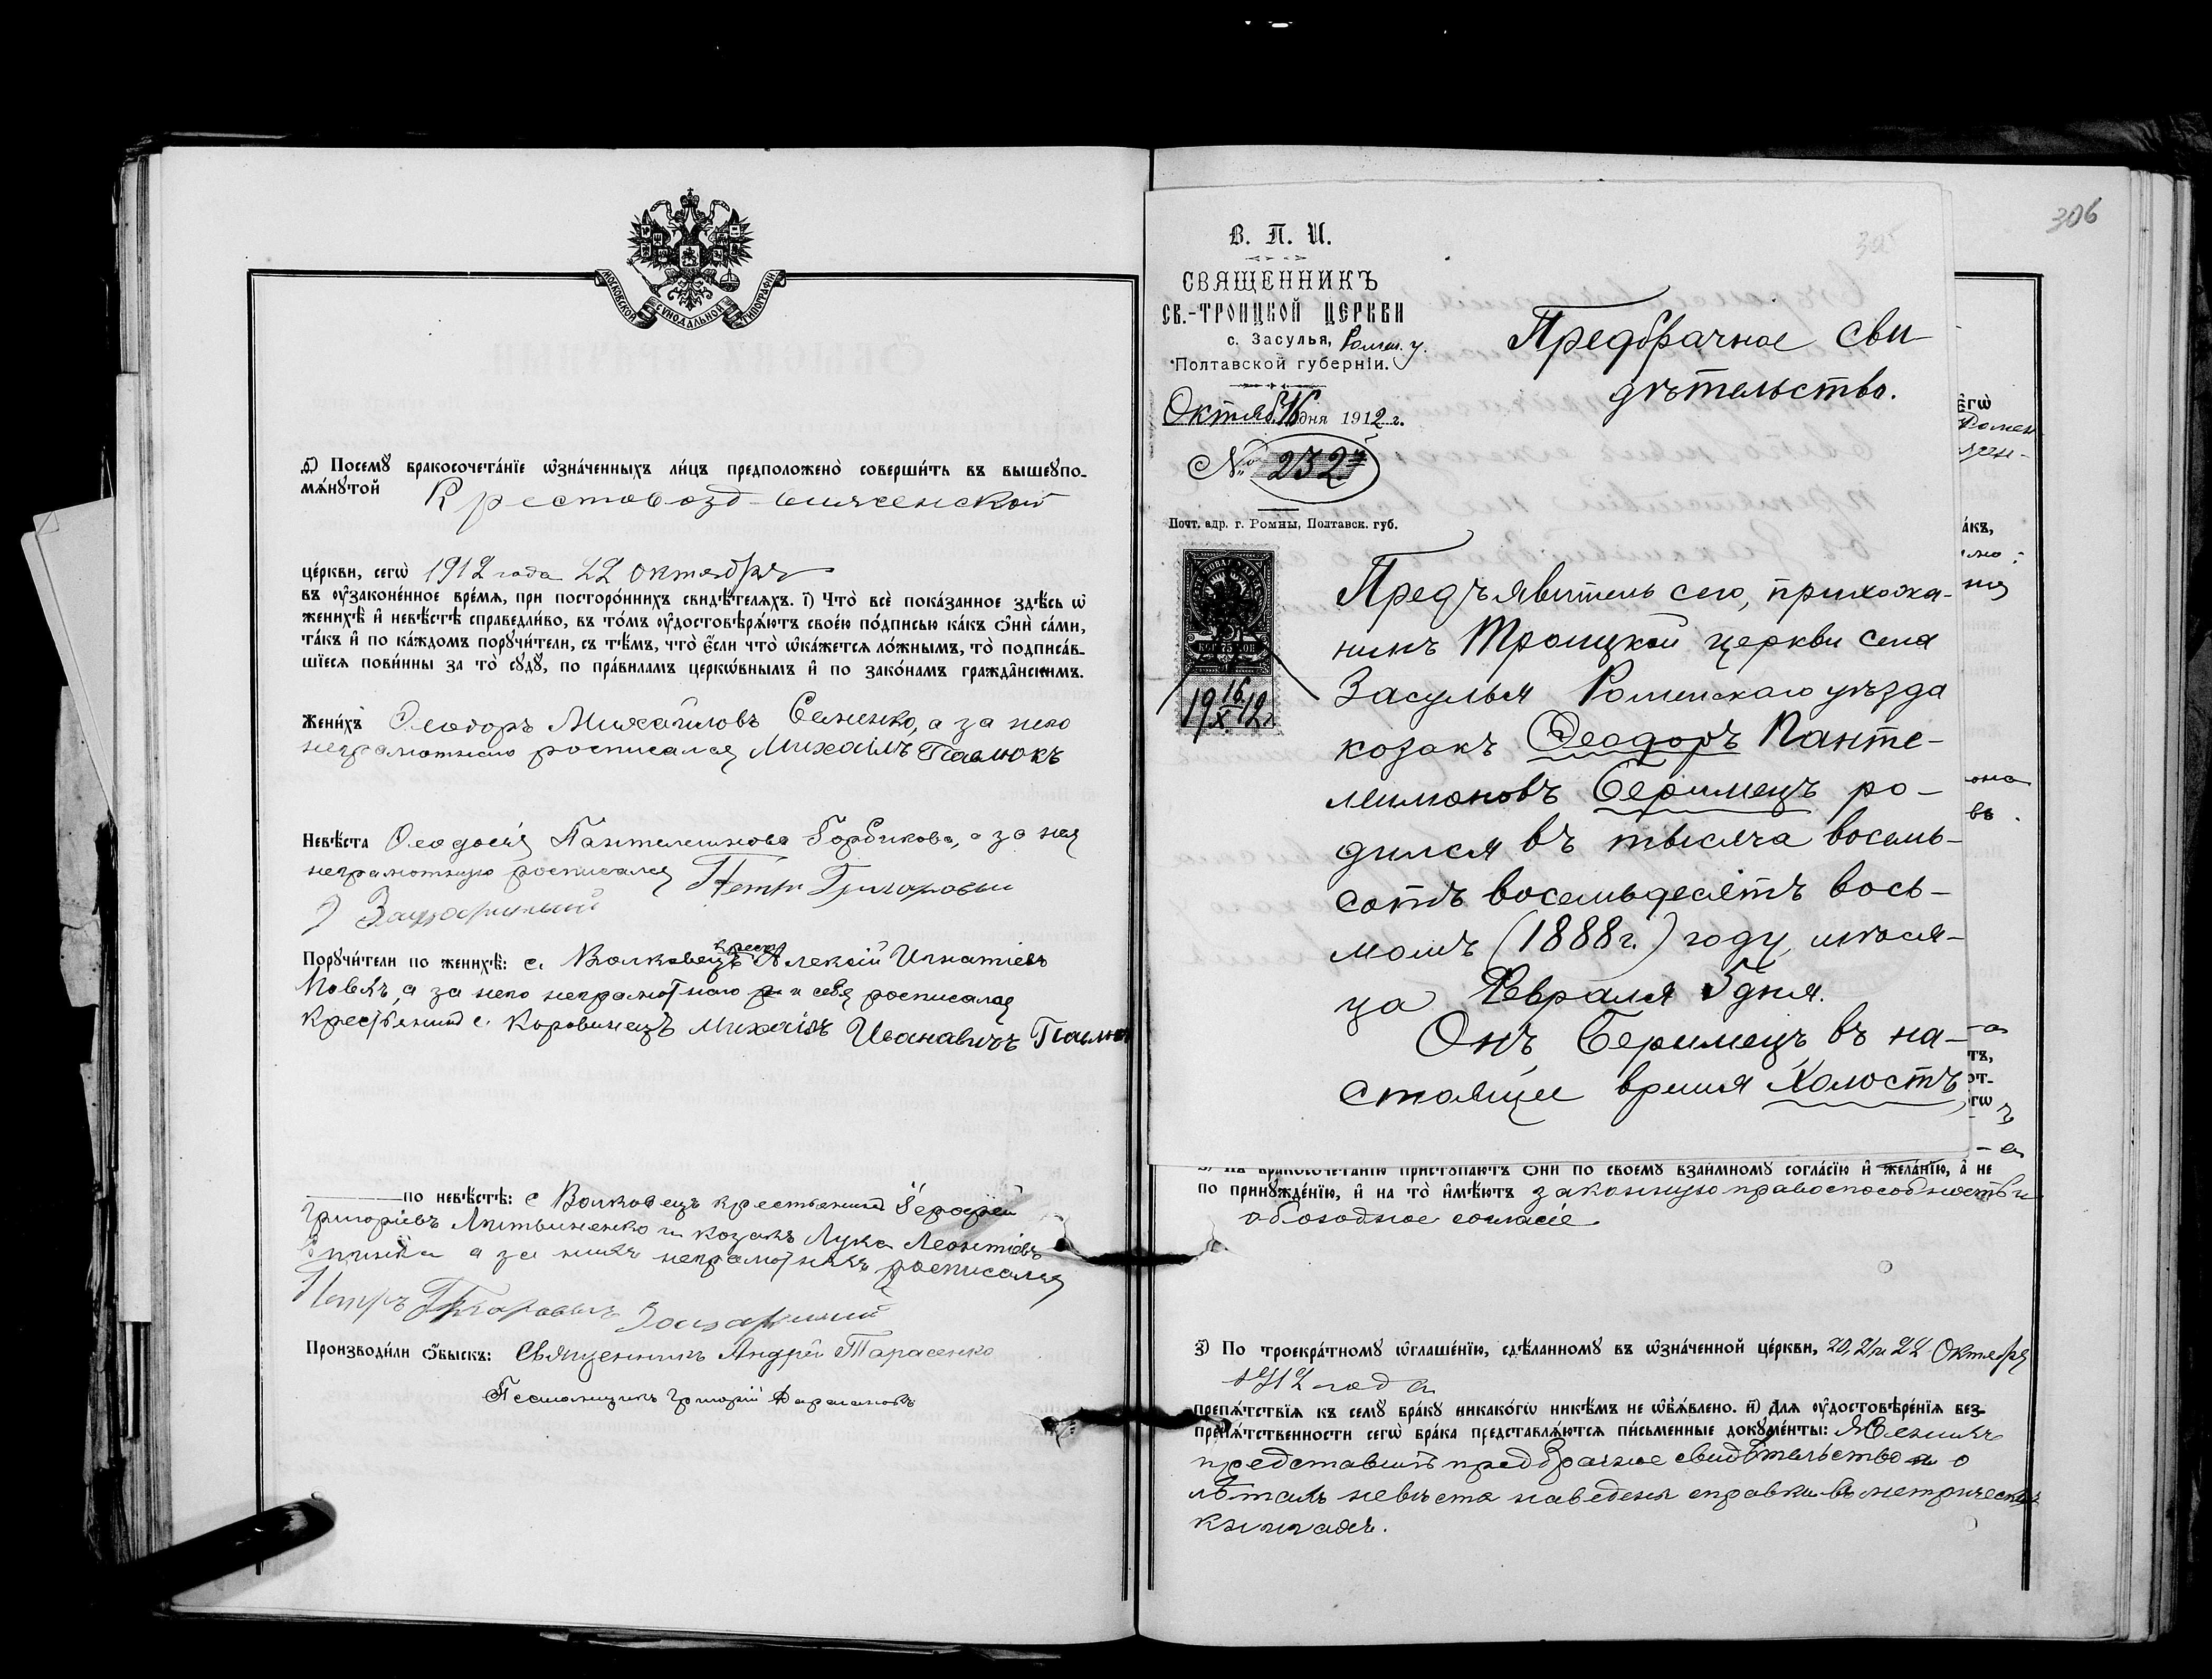 МОСКОВСКОЙ СѴНОДАЛЬНОЙ ТИПОГРАФІИ
Посемꙋ бракосочета́нїе ѡ҆зна́ченныхъ ли́цъ предположено̀ соверши́ть въ вышеꙋпо-
мѧ́нꙋтой Крестовоздвиженской
це́ркви, сегѡ̀ 1912 года 22 октября
въ ᲂу҆законе́нное вре́мѧ, при посторо́ннихъ свидѣ́телѧхъ. і҃) Что̀ всѐ пока́занное здѣ́сь ѡ҆
женихѣ̀ и҆ невѣ́стѣ справедли́во, въ то́мъ ᲂу҆достовѣрѧ́ютъ свое́ю по́дписью ка́къ ѻ҆нѝ са́ми,
та́къ и҆ по ка́ждомъ порꙋчи́тели, съ тѣ́мъ, что̀ є҆́сли что̀ ѡ҆ка́жетсѧ ло́жнымъ, то̀ подписа́в-
шїесѧ пови́нны за то̀ сꙋдꙋ̀, по пра́виламъ церкѡ́внымъ и҆ по зако́намъ гражда̑нскимъ.
Жени́хъ Ѳеодоръ Михайловъ Сененко, а за него
неграмотного росписался Михаилъ Павлюкъ
Невѣ́ста Ѳеодосія Пантелеимонова Горбикова, а за нея
неграмотную росписался Петръ Григоровичъ
Порꙋчи́тели по женихѣ̀: с. Волковецъ крест. Алексій Игнатіевъ
Мовякъ, а за него неграмотного и себя росписался
Крестьянинъ с. Коровинецъ Михаилъ Ивановичъ Павлюкъ
по невѣ́стѣ: с Волковецъ крестьянинъ
Григоріевъ Литвиненко и козакъ Лука Леонтіевъ
а за нихъ неграмотныхъ росписался
Петръ Григоровичъ
Производи́ли ѻ҆́быскъ: Священникъ Андрей Тарасенко
Псаломщикъ Григорій
306
В. П. И.
СВЯЩЕННИКЪ
СВ.-ТРОИЦКОЙ ЦЕРКВИ
с. Засулья, Ромен. у.
Полтавской губерніи.
Октяб. 16 дня 1912 г.
№ 232
Почт. адр. г. Ромны, Полтавск. губ.
75 КОП
19 16/X 12
Предбрачное сви-
дѣтельство.
Предъявитель сего, прихожа-
нинъ Троицкой церкви села
Засулья Роменскаго уѣзда
козакъ Ѳеодоръ Панте-
леимоновъ Беримецъ ро-
дился въ тысяча восемь-
сотъ восемьдесятъ вось-
момъ (1888 г.) году, мѣся-
ца Февраля 5 дня.
Онъ Беримецъ въ на-
стоящее время холостъ,
бракосочета́нїю пристꙋпа́ютъ ѻ҆нѝ по своемꙋ̀ взаи́мномꙋ согла́сїю и҆ жела́нїю, а҆ не
по принꙋжде́нїю, и҆ на то̀ и҆мѣ́ютъ законную правоспособность и
обоюдное согласіе.
з҃) По троекра́тномꙋ ѡ҆глаше́нїю, сдѣ́ланномꙋ въ ѡ҆зна́ченной це́ркви, 20, 21 и 22 Октября
1912 года
препѧ́тствїѧ къ семꙋ̀ бра́кꙋ никако́гѡ никѣ́мъ не ѡ҆б̾ѧ́влено. и҃) Длѧ̀ ᲂу҆достовѣре́нїѧ без-
препѧ́тственности сегѡ̀ бра́ка представлѧ́ютсѧ пи́сьменные докꙋме́нты: Женихъ
представилъ предбрачное свидѣтельство а о
лѣтахъ невѣста наведена справка въ метрическихъ
книгахъ.